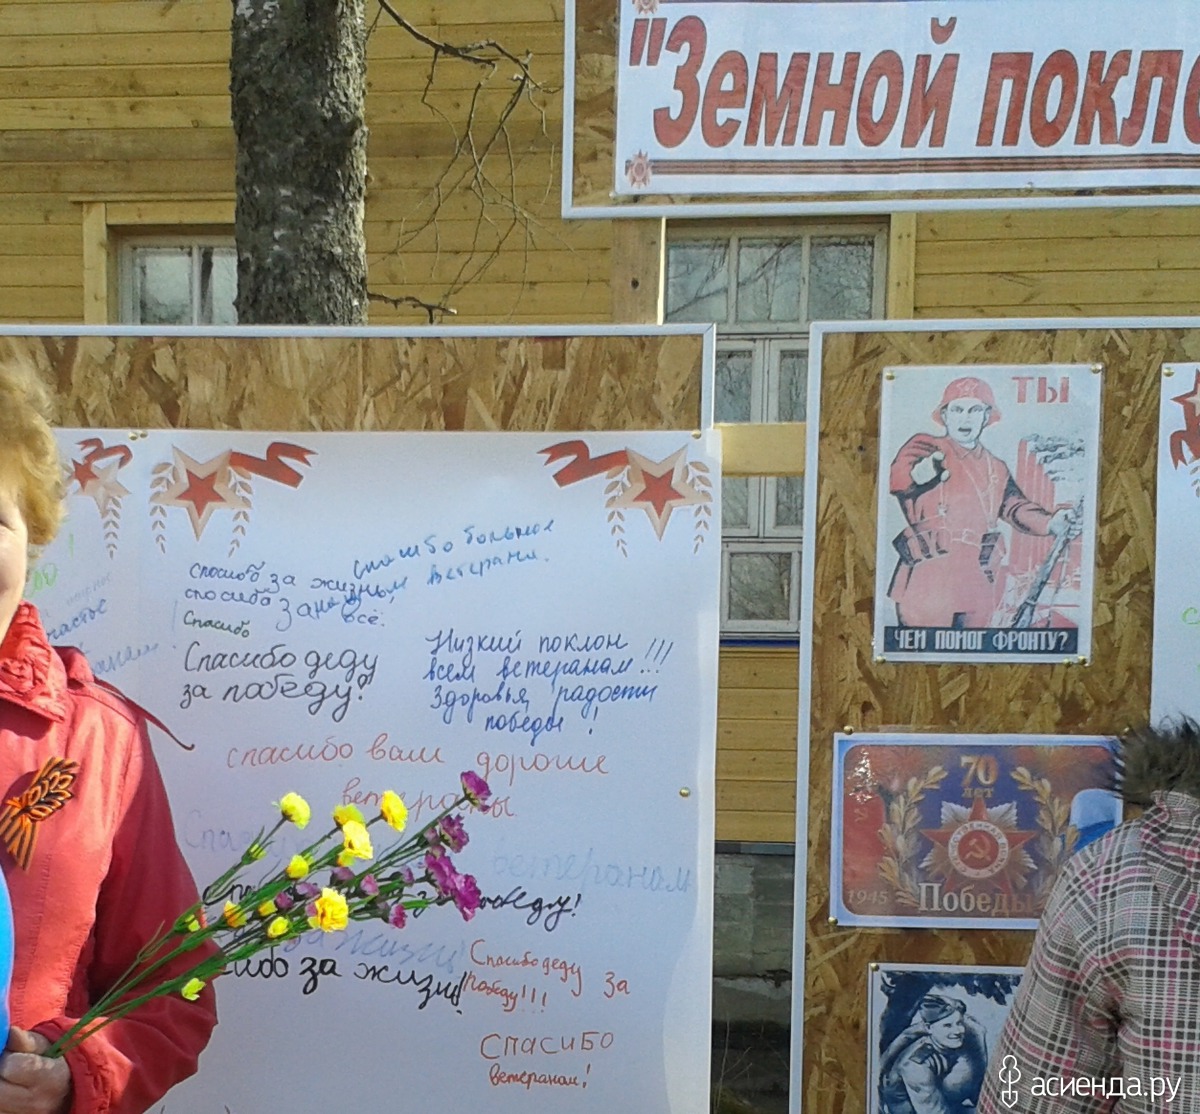 "Земной покло
ТЫ
ЧЕМ ПОМОГ ФРОНТУ?
70
лет
1945
Победы
спосибо за жизнь,
спосибо за
всё.
спасибо большое
ветерани.
Спасибо
Спасибо деду
за победу!
Низкий поклон
всем ветеранам!!!
Здоровья, радости
победы!
спасибо вам дорогие
ветераны
ветеранам
победу!
за жизнь!
сибо за жизнь!
Спасибо деду за
победу!!!
Спасибо
ветеранам!
асиенда.ру